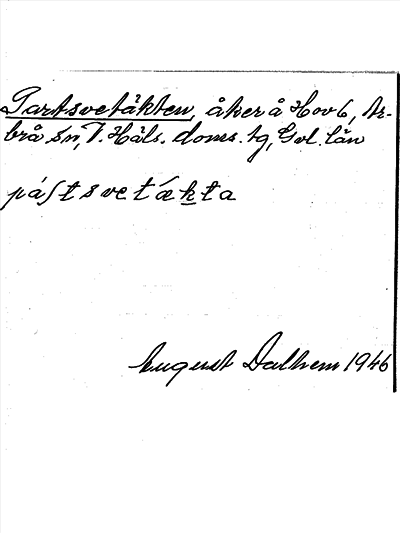 Partsvetäkten, åker å Hov 6, Ar-
brå sn, V. Häls. doms. tg, Gvl. län
páſtsvetækta
August Dalhem 1946